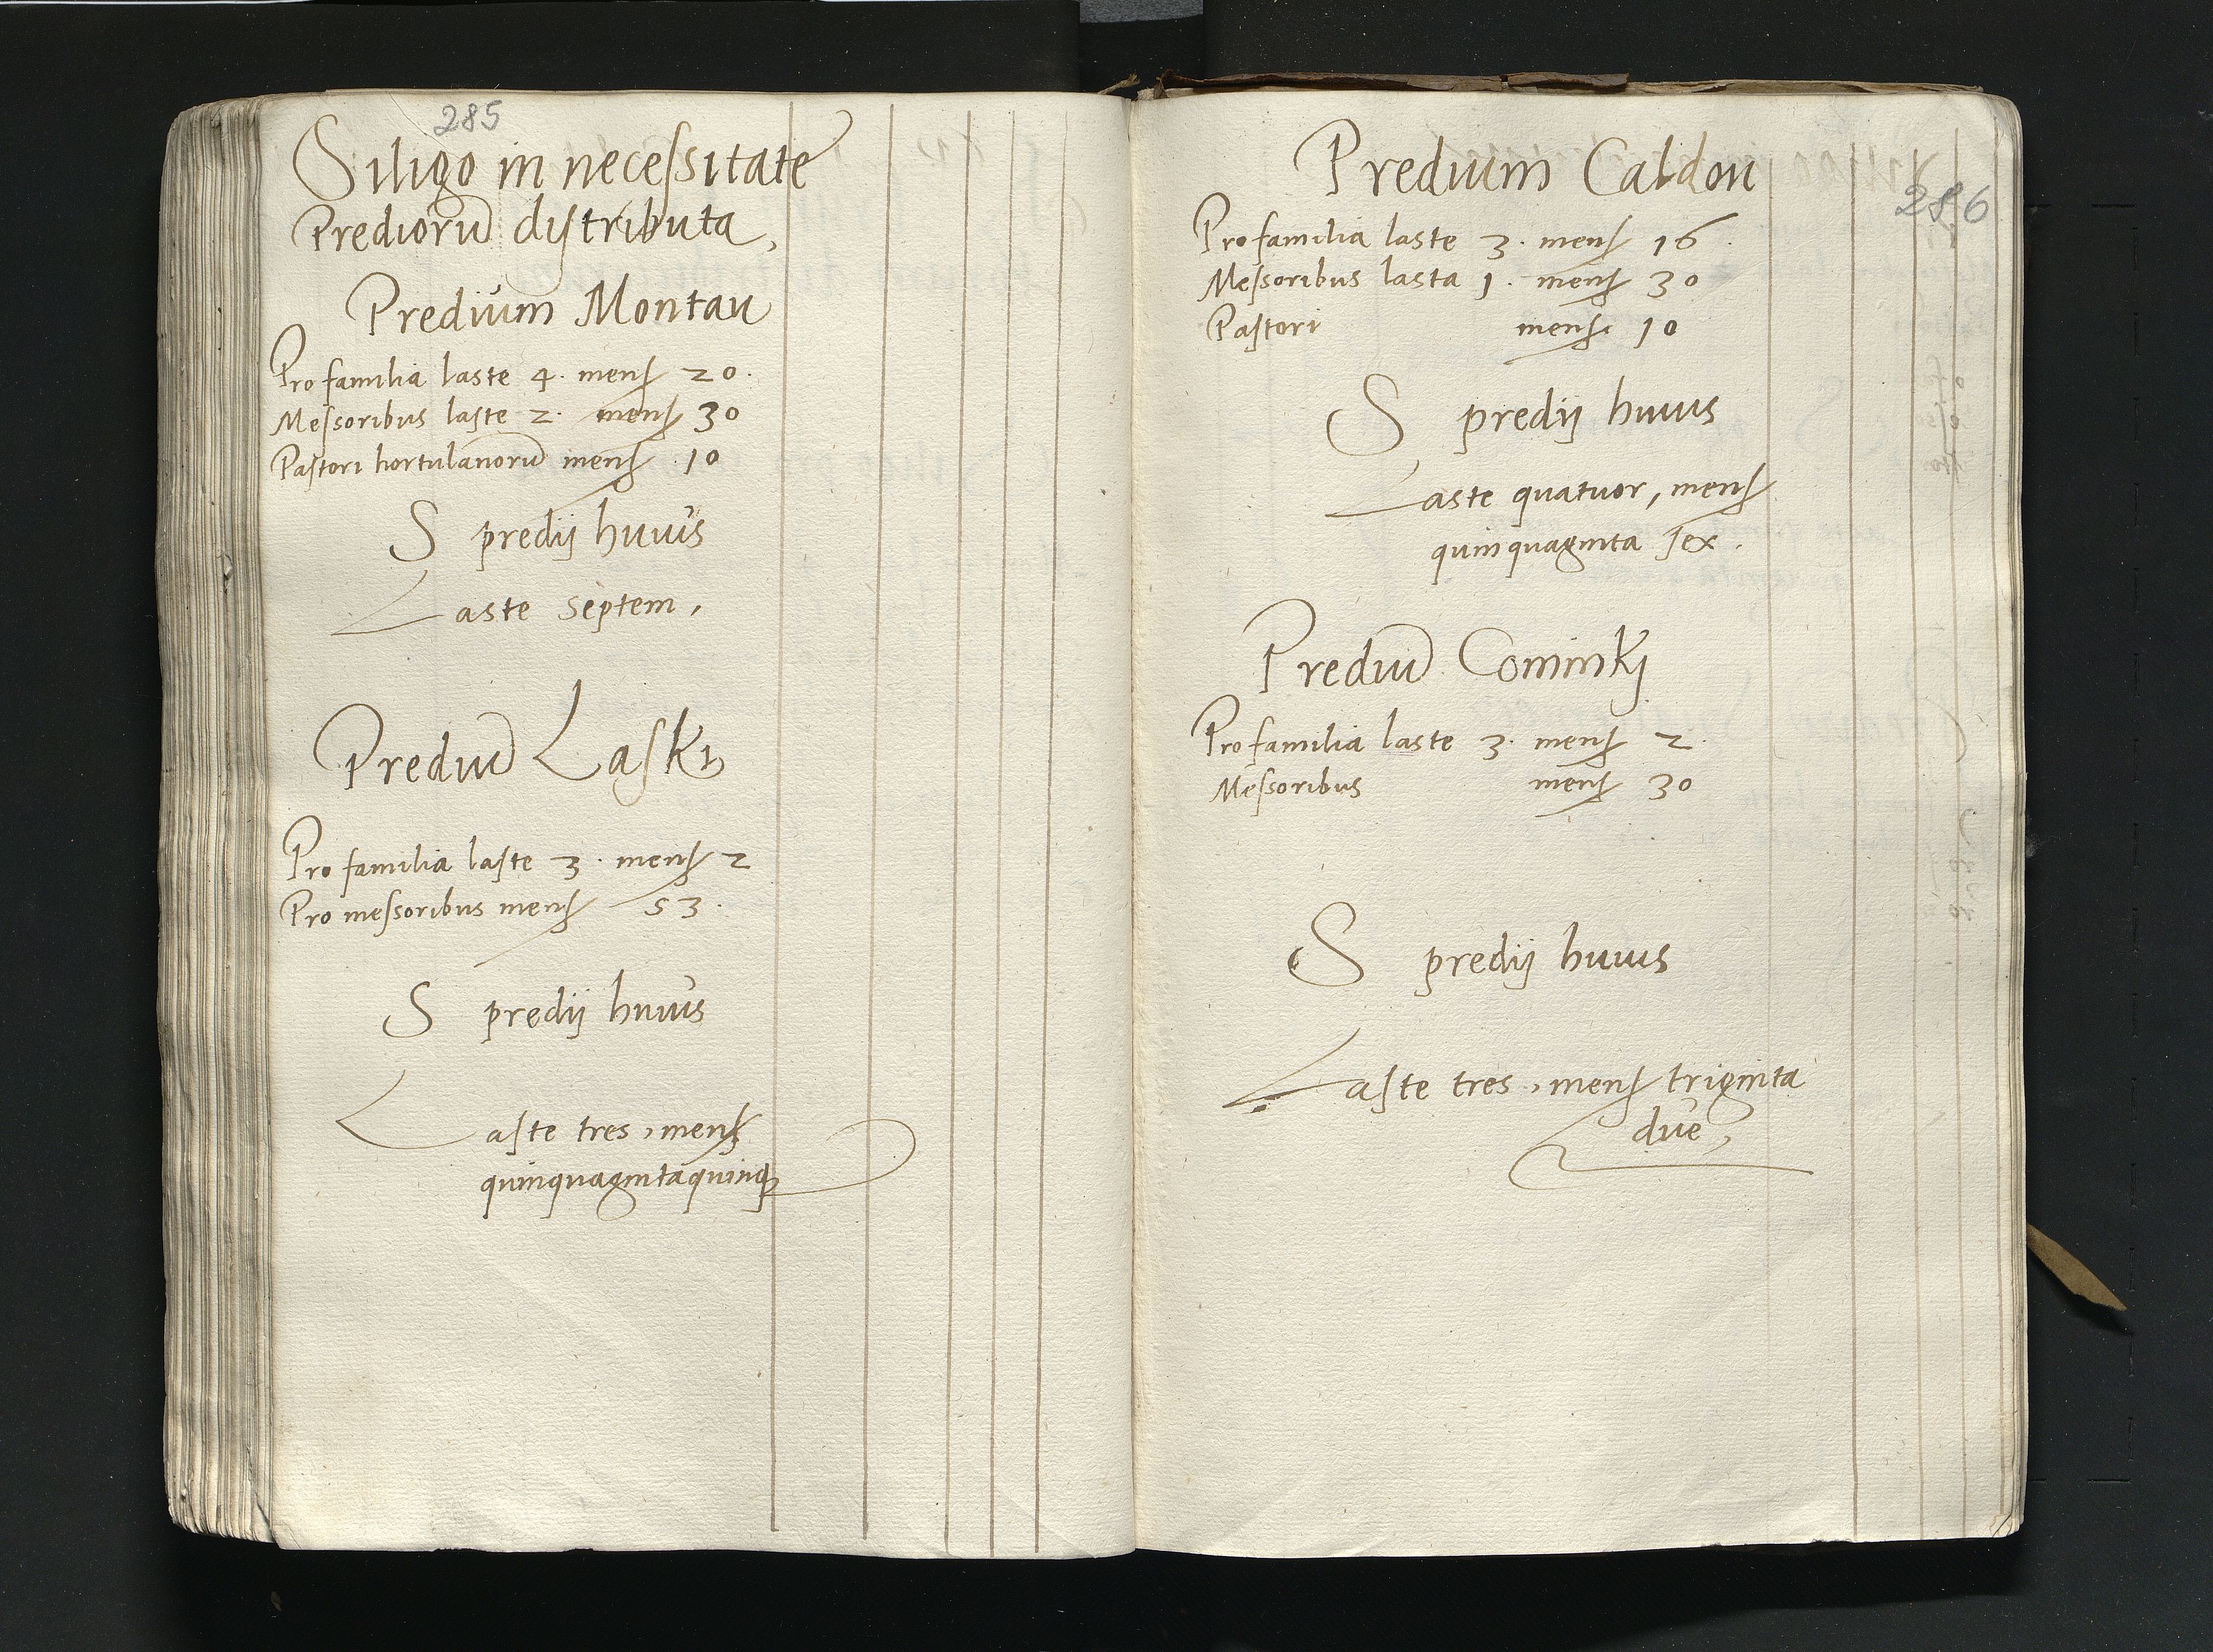 285
Siligo in necessitate
Prediorū distributa,
Predium Montau
Pro familia laste 4. mens 20.
Messoribus laste 2. mens 30
Pastori hortulanorū mens 10
S predij huius
Laste septem,
Prediū Laski
Pro familia laste 3. mens 2
Pro messoribus mens 53.
S predij huius
Laste tres, mens
quinquagintaquinq
286
Predium Caldou
Pro familia laste 3. mens 16.
Messoribus lasta 1. mens 30
Pastori mens 10
S predij huius
Laste quatuor, mens
quinquaginta sex.
Prediū Cominkj
Pro familia laste 3. mens 2.
Messoribus mens 30
S predij huius
Laste tres, mens triginta
due,